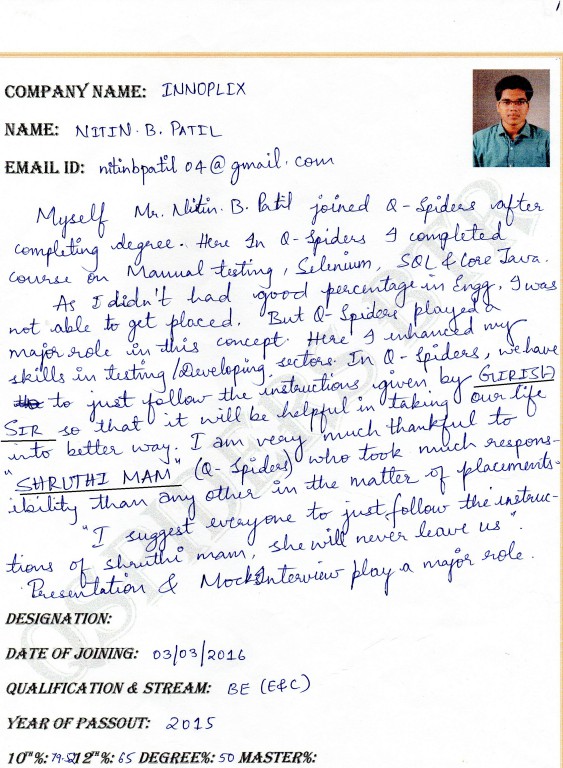 COMPANY NAME: INNOPLIX
NAME: NITIN. B. PATIL
EMAIL ID: nitinbpatil04@gmail.com
Myself Mr. Nitin. B. Patil joined Q-Spiders after
completing degree. Here In Q-Spiders I completed
course on Manual testing, Selenium, SQL & Core Java.
As I didn't had good percentage in Engg, I was
not able to get placed. But Q-Spiders played a
major role in this concept. Here I enhanced my
skills in testing/Developing sectors. In Q-Spiders, we have
to just follow the instructions given by GIRISH
SIR so that it will be helpful in taking our life
into better way. I am very much thankful to
"SHRUTHI MAM" (Q-Spiders) who took much respons-
ibility than any other in the matter of placements.
"I suggest everyone to just follow the instruc-
tions of shruthi mam, she will never leave us".
Presentation & Mock Interview play a major role.
DESIGNATION:
DATE OF JOINING: 03/03/2016
QUALIFICATION & STREAM: BE (E&C)
YEAR OF PASSOUT: 2015
10TH%: 79.5 12TH%: 65 DEGREE%: 50 MASTER%: